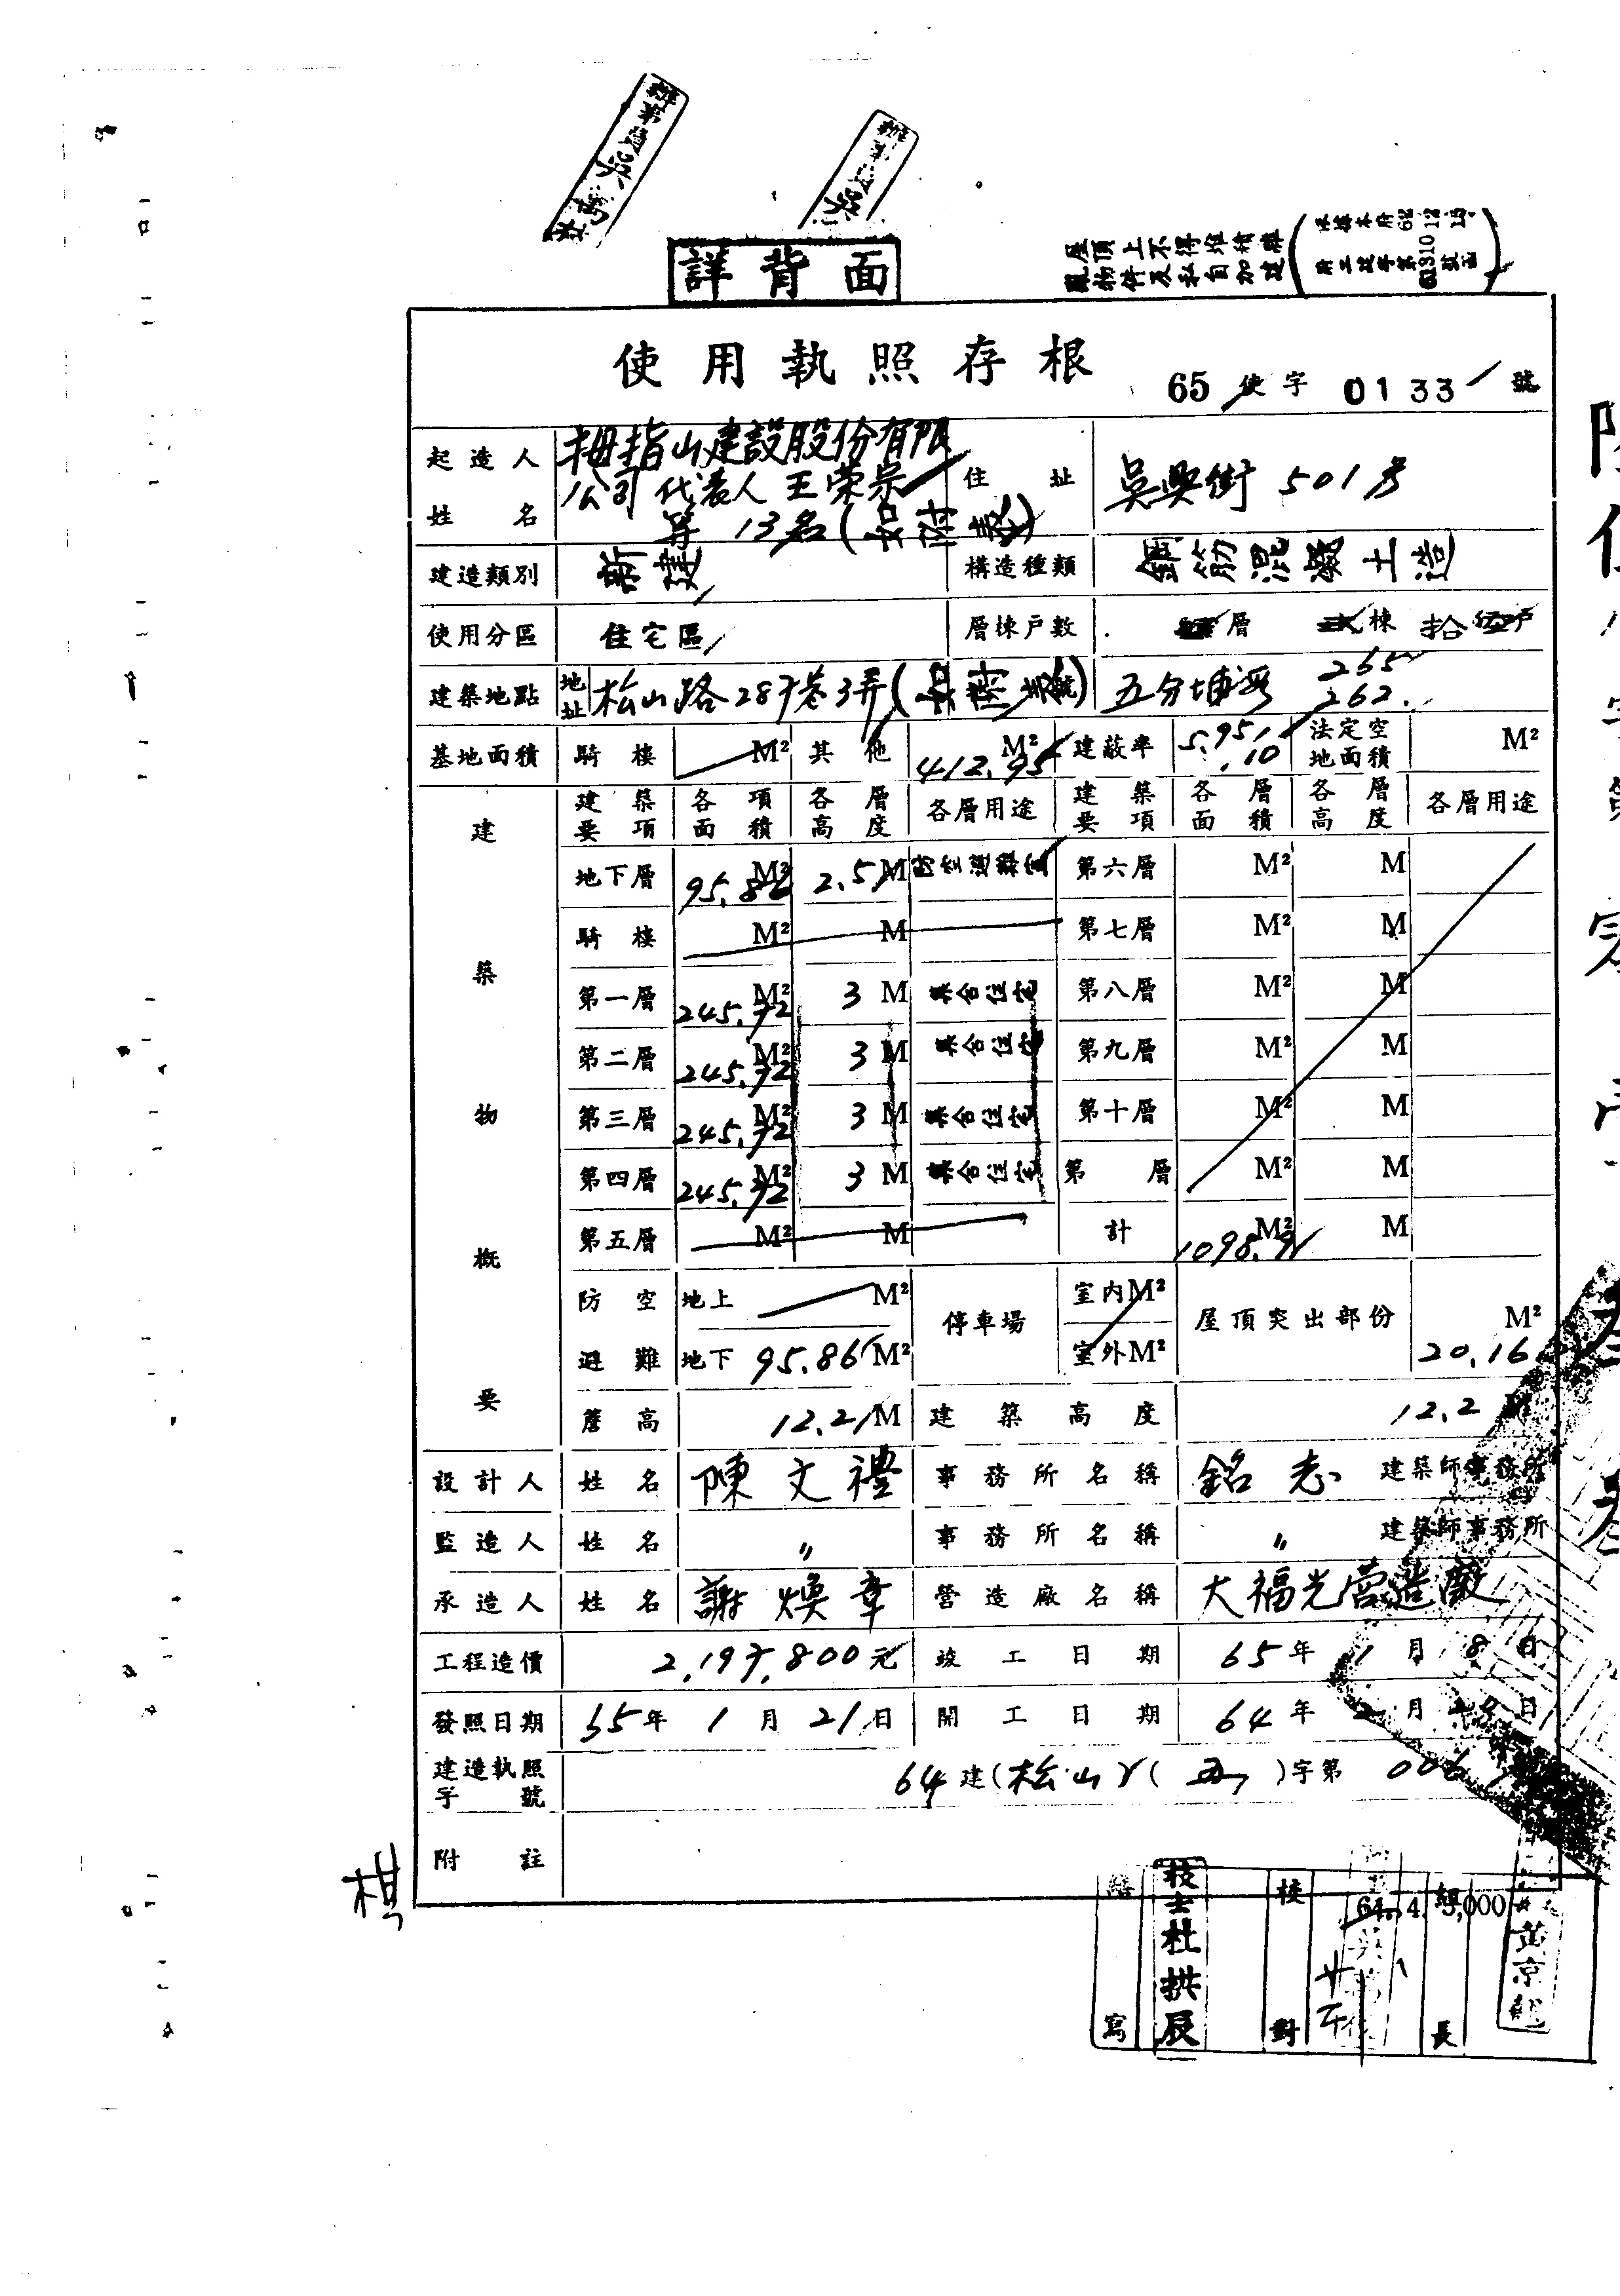 詳背面
屋頂上不得堆積雜
物件及私自加建
使用執照存根
65使字0133號
起造人姓名 拇指山建設股份有限
公司代表人王榮宗
等13名(如附表)
住址 吳興街501號
建造類別 新建 構造種類 鋼筋混凝土造
使用分區 住宅區 層棟戶數 層 棟 拾 戶
建築地點 地址 松山路287巷3弄 五分埔段 265
262
基地面積 騎樓 M² 其他 412.95 M² 建蔽率 5.951/10 法定空地面積 M²
建築物概要
建築要項 各項面積 各層高度 各層用途 建築要項 各層面積 各層高度 各層用途
地下層 95.86 M² 2.5 M 防空避難室 第六層 M² M
騎樓 M² M 第七層 M² M
第一層 245.72 M² 3 M 集合住宅 第八層 M² M
第二層 245.72 M² 3 M 集合住宅 第九層 M² M
第三層 245.72 M² 3 M 集合住宅 第十層 M² M
第四層 245.72 M² 3 M 集合住宅 第 層 M² M
第五層 M² M 計 M² M
防空避難 地上 M² 停車場 室內M² 屋頂突出部份 M²
地下 95.86 M² 室外M² 20.16
簷高 12.2 M 建築高度 12.2
設計人 姓名 陳文禮 事務所名稱 銘志 建築師事務所
監造人 姓名 〃 事務所名稱 〃 建築師事務所
承造人 姓名 謝煥章 營造廠名稱 大福光營造廠
工程造價 2,197,800元 竣工日期 65年1月8日
發照日期 65年1月21日 開工日期 64年 月 日
建造執照字號 64建(松山)( )字第006
附註
64. 4. 3,000
繕寫 技士杜拱辰 校對 組長